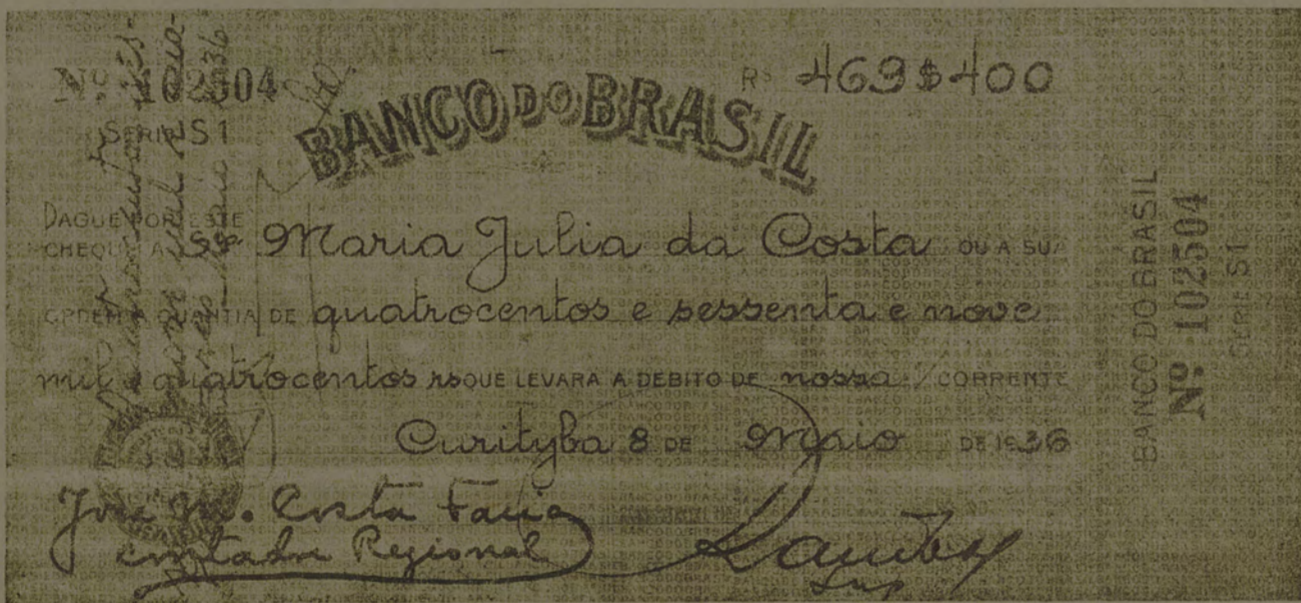 Nº 102504
SERIE S1
Rs 469$400
BANCO DO BRASIL
PAGUE POR ESTE
CHEQUE A Sra Maria Julia da Costa OU A SUA
ORDEM A QUANTIA DE quatrocentos e sessenta e nove
mil e quatrocentos rs QUE LEVARA A DEBITO DE nossa C/ CORRENTE
Curityba 8 DE Maio DE 1936
José M. Costa Faria
contador Regional
BANCO DO BRASIL
Nº 102504
SERIE S1